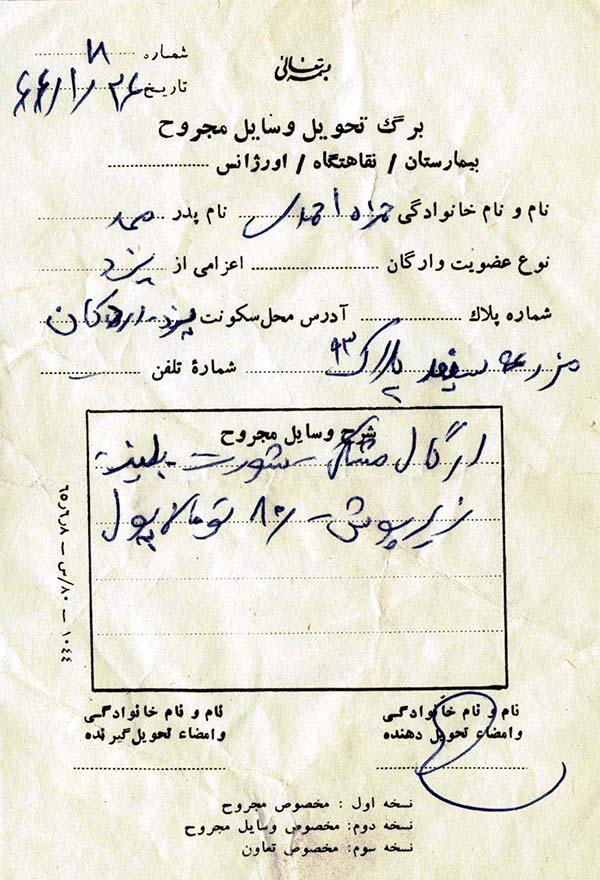 بسمه تعالی
شماره ۸
تاریخ ۶۶/۱/۲۶
برگ تحویل وسایل مجروح
بیمارستان / نقاهتگاه / اورژانس
نام و نام خانوادگی حمزه احمدی نام پدر محمد
نوع عضویت وارگان اعزامی از یزد
شماره پلاک آدرس محل سکونت یزد - اردکان
مزرعه سیف پلاک ۹۳ شمارهٔ تلفن
شرح وسایل مجروح
شورت - بلیز -
زیرپوش - ۸۰ تومان پول
۱۰۴۴ – ۸۰/س – ۸ر۶ر۶۵
نام و نام خانوادگی
وامضاء تحویل دهنده
نام و نام خانوادگی
وامضاء تحویل گیرنده
نسخه اول : مخصوص مجروح
نسخه دوم: مخصوص وسایل مجروح
نسخه سوم: مخصوص تعاون